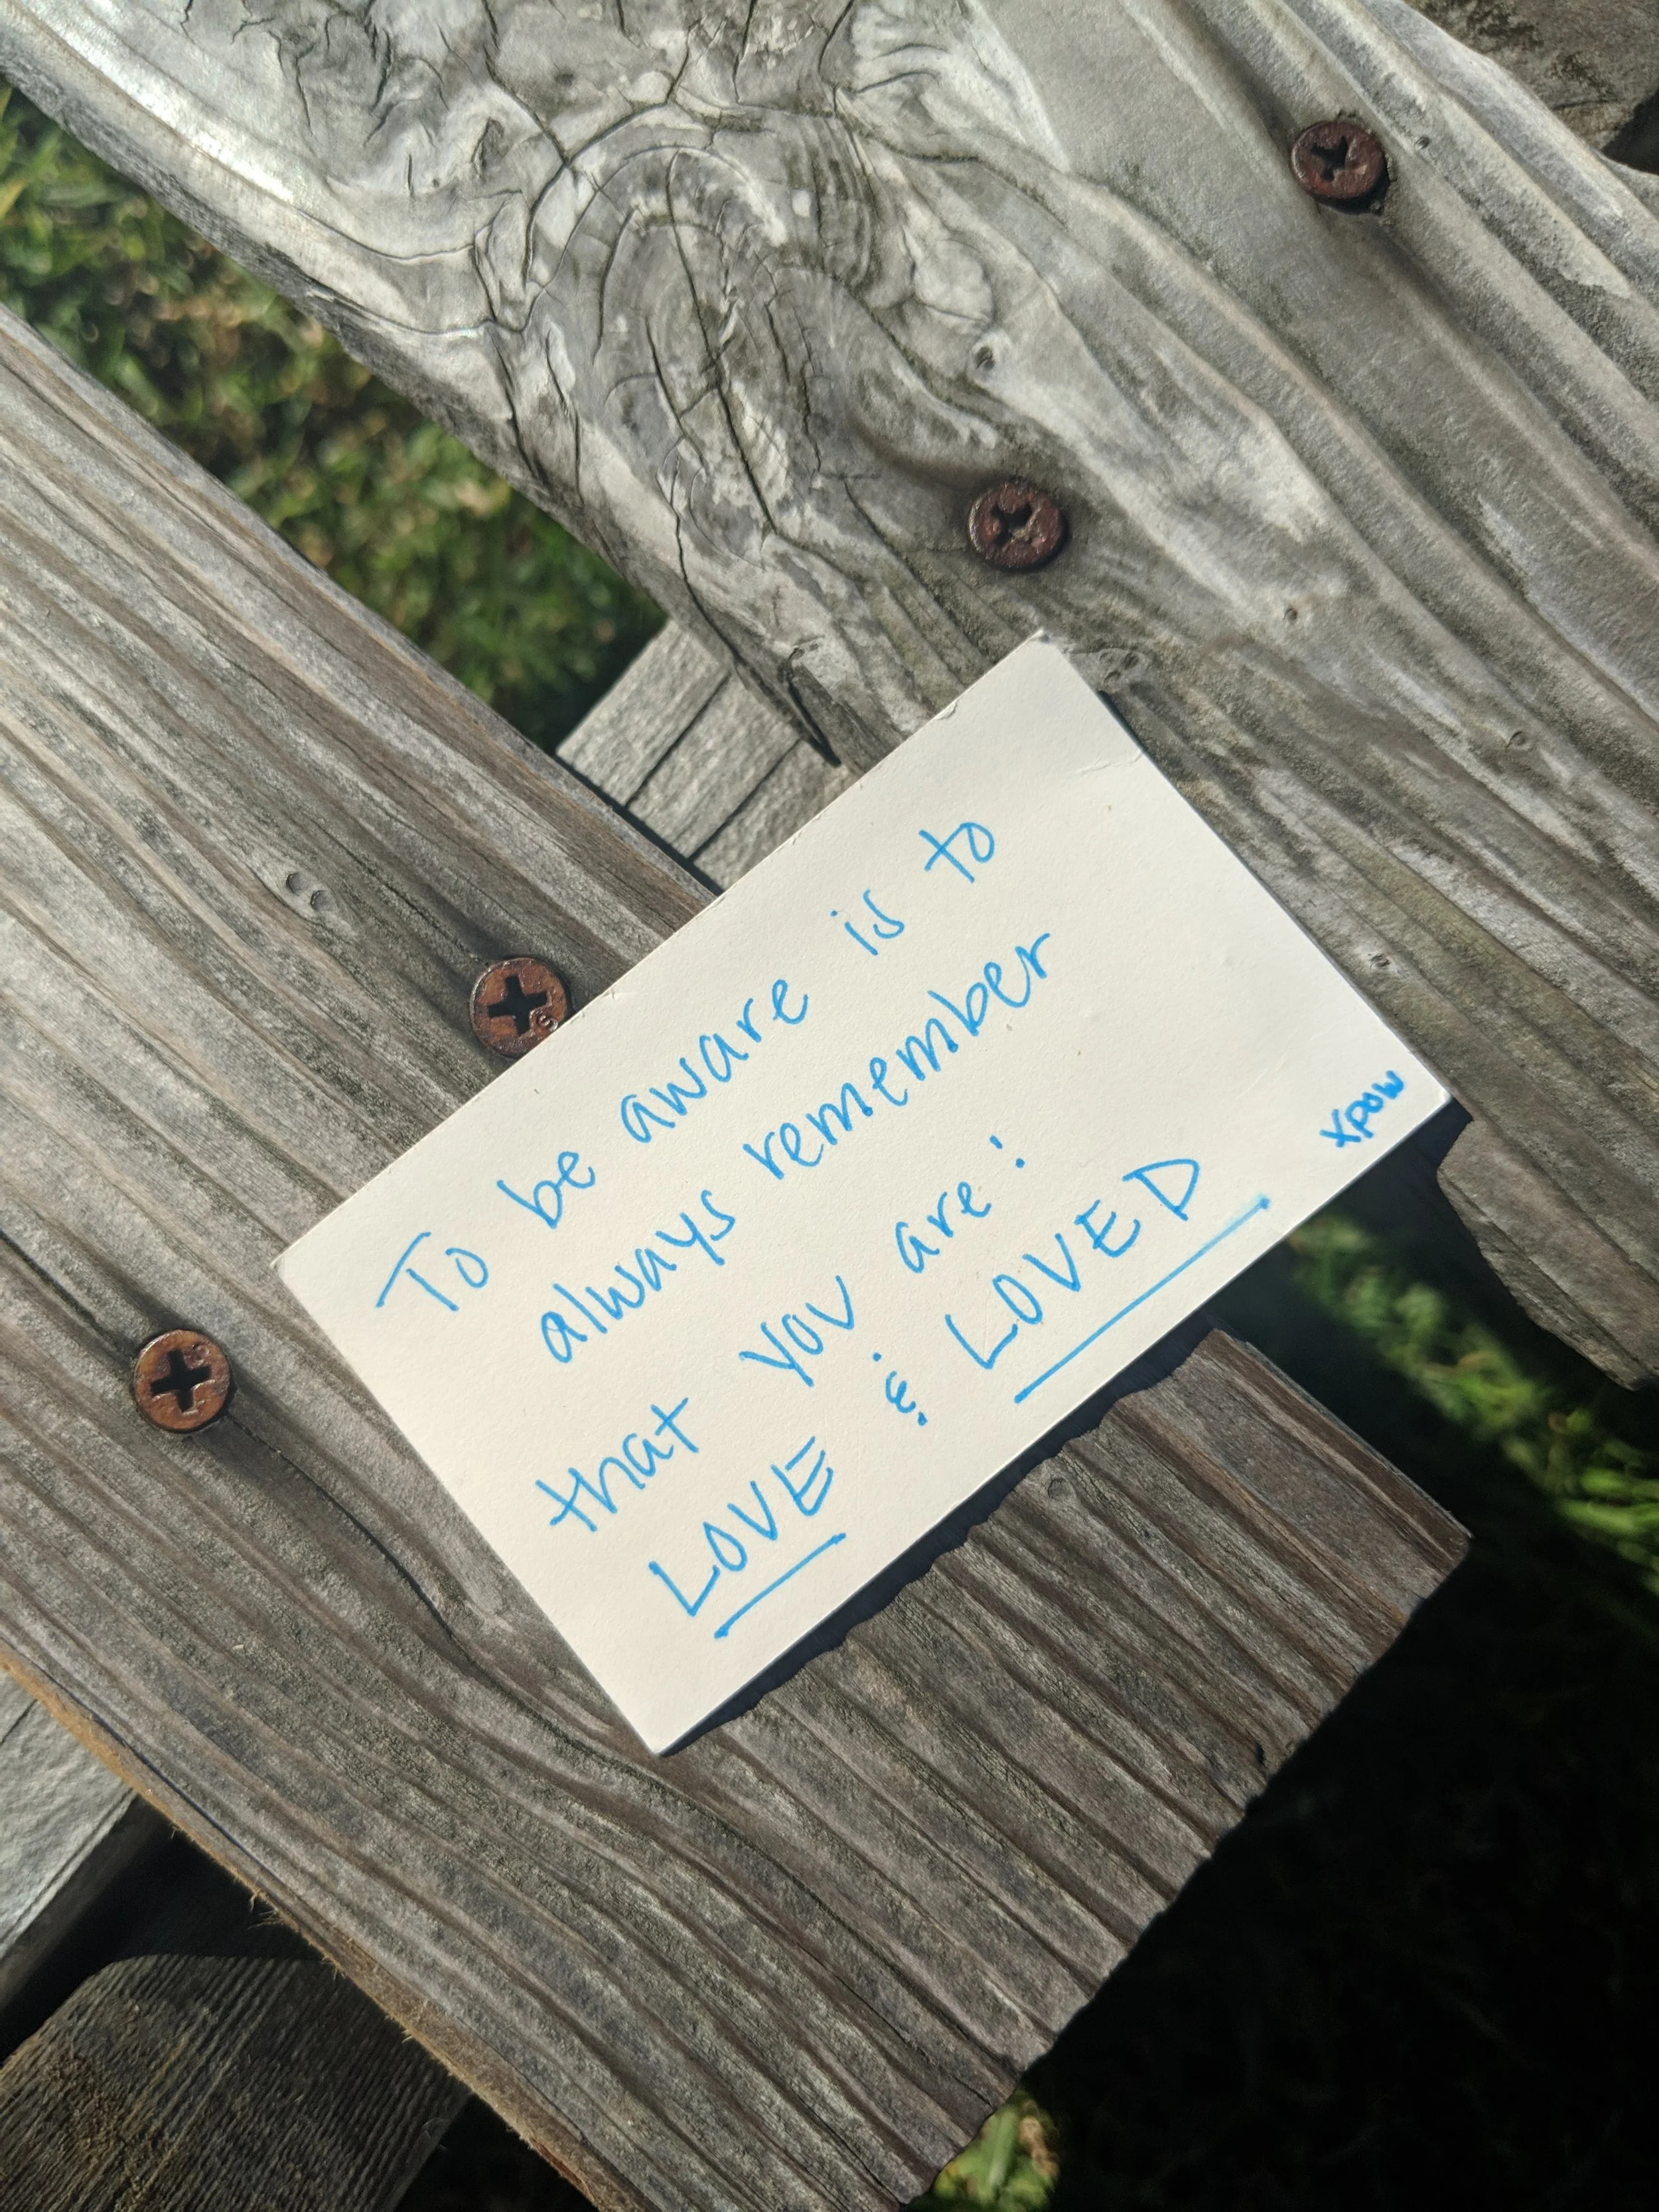 To be aware is to
always remember
that you are:
LOVE & LOVED
xpow